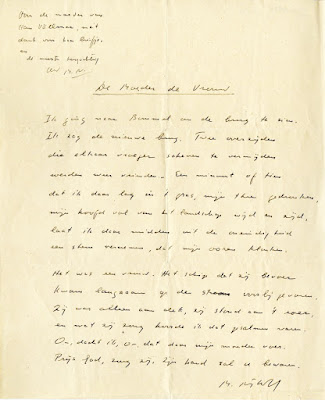 Aan de moeder van
met
dank van haar briefje
en
de meeste hoogachting
M. N.
De Moeder de Vrouw.
Ik ging naar Bommel om de brug te zien.
Ik zag de nieuwe brug. Twee overzijden
die elkaar vroeger schenen te vermijden
werden weer buren. Een minuut of tien
dat ik daar lag, in 't gras, mijn thee gedronken,
mijn hoofd vol van het landschap wijd en zijd,
laat ik daar midden uit de oneindigheid
een stem vernemen, dat mijn ooren klonken.
Het was een vrouw. Het schip dat zij bevoer
kwam langzaam op de stroom voorbij gevaren.
Zij was alleen aan dek, zij stond aan 't roer,
en wat zij zong hoorde ik dat psalmen waren.
O, dacht ik, O, dat daar mijn moeder voer.
Prijs God, zong zij, Zijn hand zal u bewaren.
M. Nijhoff